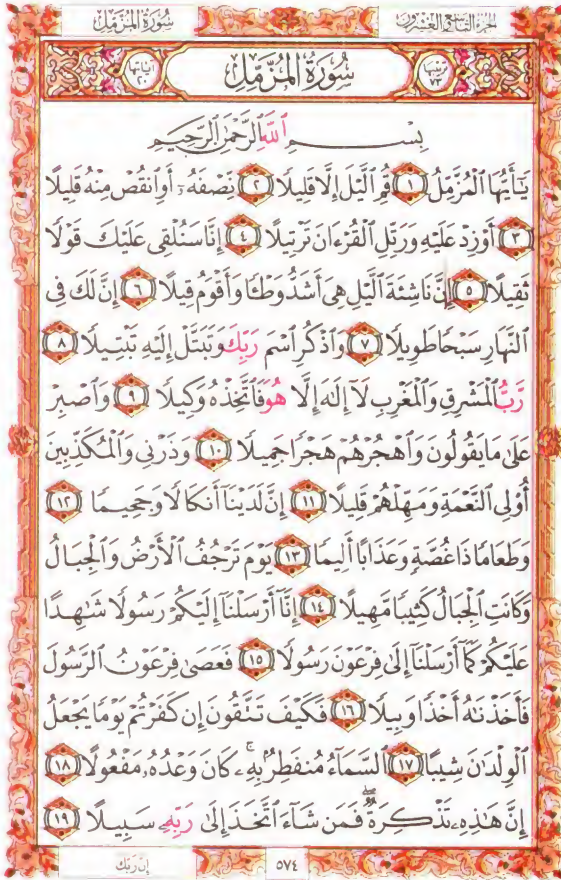 الجزء التاسع والعشرون سُورَةُ المُزَّمِّل
ترتيبها ٧٣ سُورَةُ المُزَّمِّلِ آياتها ٢٠
بِسْمِ ٱللَّهِ ٱلرَّحْمَٰنِ ٱلرَّحِيمِ
يَٰٓأَيُّهَا ٱلْمُزَّمِّلُ ١ قُمِ ٱلَّيْلَ إِلَّا قَلِيلًا ٢ نِّصْفَهُۥٓ أَوِ ٱنقُصْ مِنْهُ قَلِيلًا
٣ أَوْ زِدْ عَلَيْهِ وَرَتِّلِ ٱلْقُرْءَانَ تَرْتِيلًا ٤ إِنَّا سَنُلْقِى عَلَيْكَ قَوْلًا
ثَقِيلًا ٥ إِنَّ نَاشِئَةَ ٱلَّيْلِ هِىَ أَشَدُّ وَطْـًٔا وَأَقْوَمُ قِيلًا ٦ إِنَّ لَكَ فِى
ٱلنَّهَارِ سَبْحًا طَوِيلًا ٧ وَٱذْكُرِ ٱسْمَ رَبِّكَ وَتَبَتَّلْ إِلَيْهِ تَبْتِيلًا ٨
رَّبُّ ٱلْمَشْرِقِ وَٱلْمَغْرِبِ لَآ إِلَٰهَ إِلَّا هُوَ فَٱتَّخِذْهُ وَكِيلًا ٩ وَٱصْبِرْ
عَلَىٰ مَا يَقُولُونَ وَٱهْجُرْهُمْ هَجْرًا جَمِيلًا ١٠ وَذَرْنِى وَٱلْمُكَذِّبِينَ
أُو۟لِى ٱلنَّعْمَةِ وَمَهِّلْهُمْ قَلِيلًا ١١ إِنَّ لَدَيْنَآ أَنكَالًا وَجَحِيمًا ١٢
وَطَعَامًا ذَا غُصَّةٍ وَعَذَابًا أَلِيمًا ١٣ يَوْمَ تَرْجُفُ ٱلْأَرْضُ وَٱلْجِبَالُ
وَكَانَتِ ٱلْجِبَالُ كَثِيبًا مَّهِيلًا ١٤ إِنَّآ أَرْسَلْنَآ إِلَيْكُمْ رَسُولًا شَٰهِدًا
عَلَيْكُمْ كَمَآ أَرْسَلْنَآ إِلَىٰ فِرْعَوْنَ رَسُولًا ١٥ فَعَصَىٰ فِرْعَوْنُ ٱلرَّسُولَ
فَأَخَذْنَٰهُ أَخْذًا وَبِيلًا ١٦ فَكَيْفَ تَتَّقُونَ إِن كَفَرْتُمْ يَوْمًا يَجْعَلُ
ٱلْوِلْدَٰنَ شِيبًا ١٧ ٱلسَّمَآءُ مُنفَطِرٌۢ بِهِۦ ۚ كَانَ وَعْدُهُۥ مَفْعُولًا ١٨
إِنَّ هَٰذِهِۦ تَذْكِرَةٌ ۖ فَمَن شَآءَ ٱتَّخَذَ إِلَىٰ رَبِّهِۦ سَبِيلًا ١٩
٥٧٤ إِنَّ رَبَّكَ